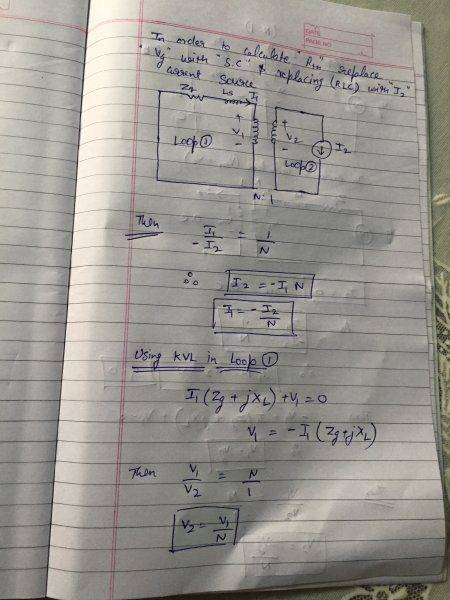 DATE
PAGE NO.
In order to calculate "Rth" replace
"Vg" with "S.C" & replacing (RLC) with "I2"
current source
Zg Ls I1
+ V1 -
+ V2 -
I2
Loop ①
Loop ②
N:1
Then I1/-I2 = 1/N
∴ I2 = -I1 N
I1 = -I2/N
Using KVL in Loop ①
I1 (Zg + jXL) + V1 = 0
V1 = -I1 (Zg + jXL)
Then V1/V2 = N/1
V2 = V1/N